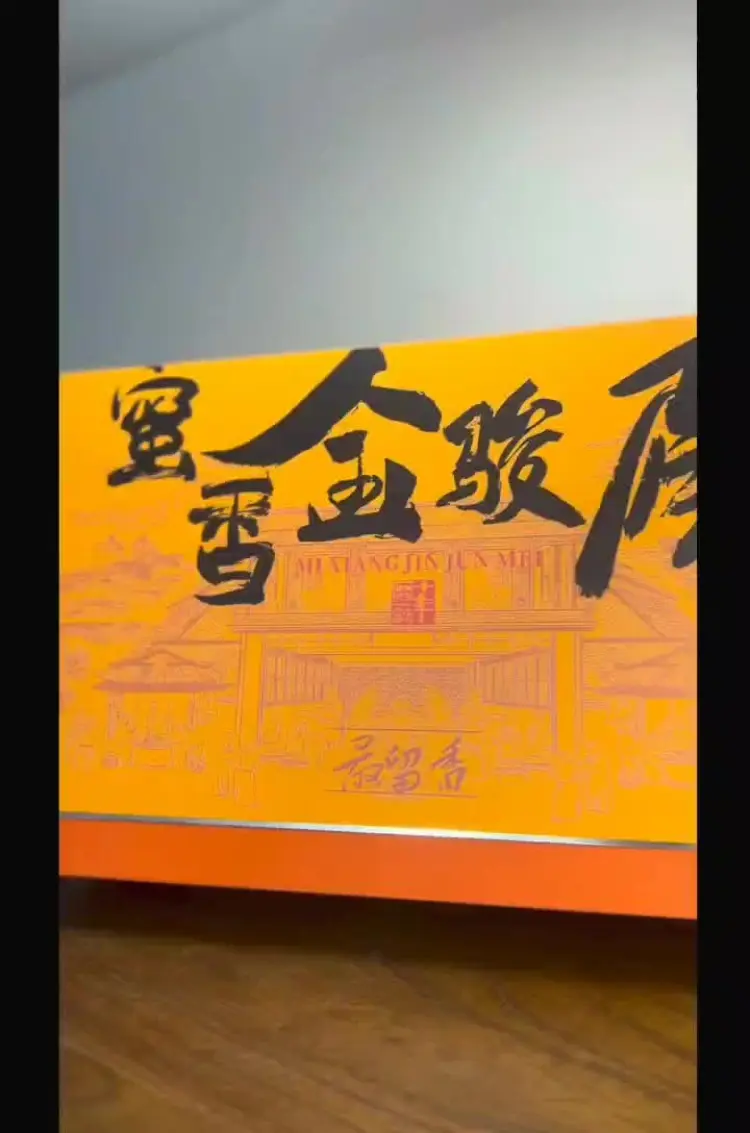 蜜香金骏眉
MI XIANG JIN JUN MEI
最留香